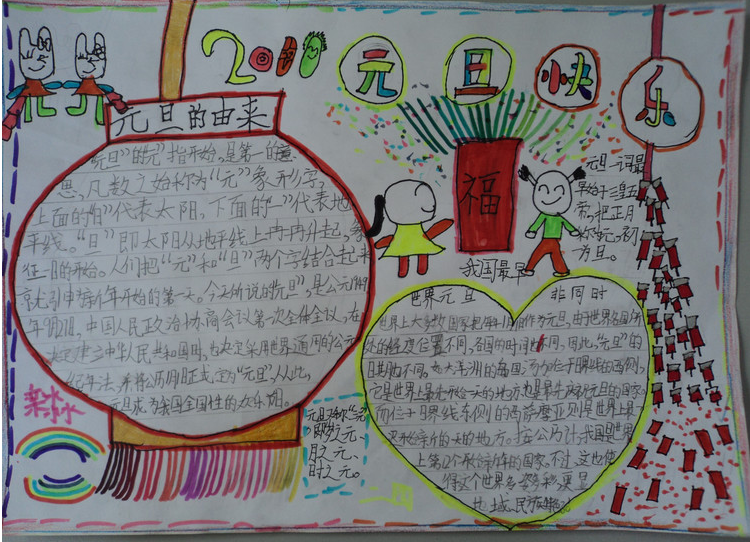 2011 元旦快乐
元旦的由来
"元旦"的"元"指开始,是第一的意
思,凡数之始称为"元"象形字,
上面的"日"代表太阳,下面的"一"代表地
平线。"旦"即太阳从地平线上冉冉升起,象
征一日的开始。人们把"元"和"旦"两个字结合起来
就引申为新年开始的第一天。今天所说的"元旦",是公元
年9月27日,中国人民政治协商会议第一次全体会议,在
决定建立中华人民共和国时,也决定采用世界通用的公元
纪年法,并将公历1月1日正式定为"元旦",从此,
元旦成为我国全国性的欢乐节。
福
元旦一词最
早始于三皇五
帝,把正月
称元,初
为旦。
我国最早
元旦又称"三元"
即岁之元、
月之元、
时之元。
世界元旦 非同时
世界上大多数国家把每年1月1日作为元旦,由于世界各国所
处的经度位置不同,各国的时间也不同,因此,"元旦"的
日期也不同。如大洋洲的岛国汤加位于日界线的西侧,
它是世界上最先开始一天的地方,也是最先庆祝元旦的国家。
而位于日界线东侧的西萨摩亚则是世界上最
迟开始新的一天的地方。按公历计,我国是世界
上第12个开始新年的国家。不过,这也使
得这个世界多姿多彩,更显
地域、民族